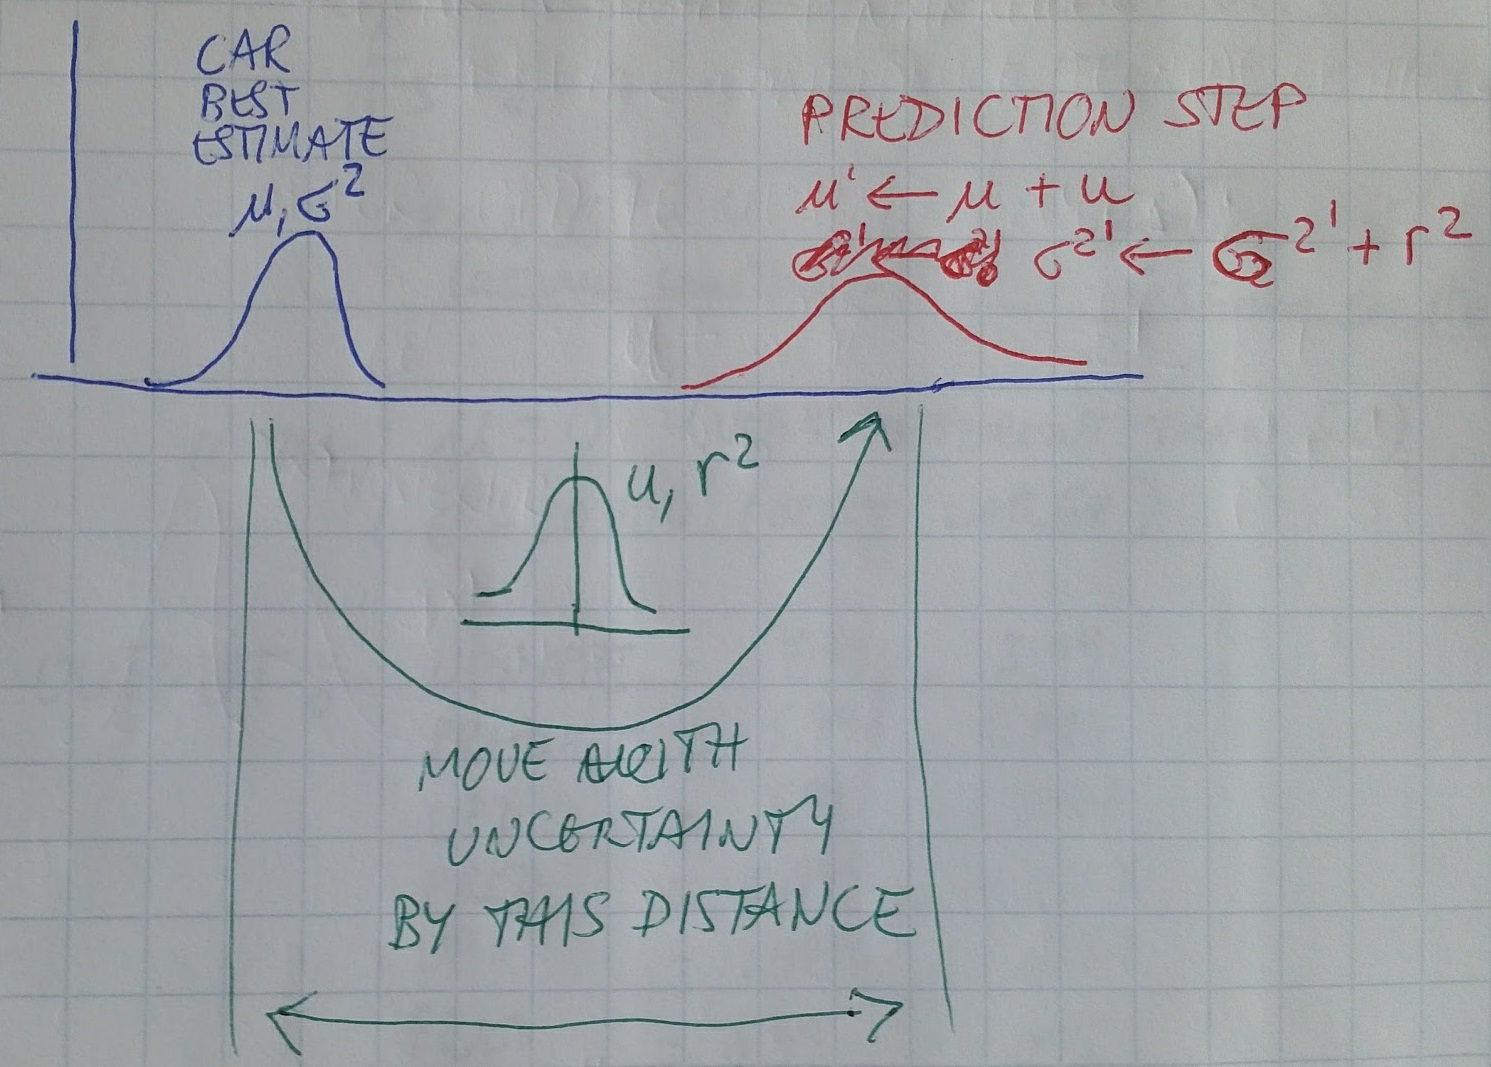 CAR
BEST
ESTIMATE
μ, σ²
PREDICTION STEP
μ' ← μ + u
σ²' ← σ²' + r²
u, r²
MOVE WITH
UNCERTAINTY
BY THIS DISTANCE